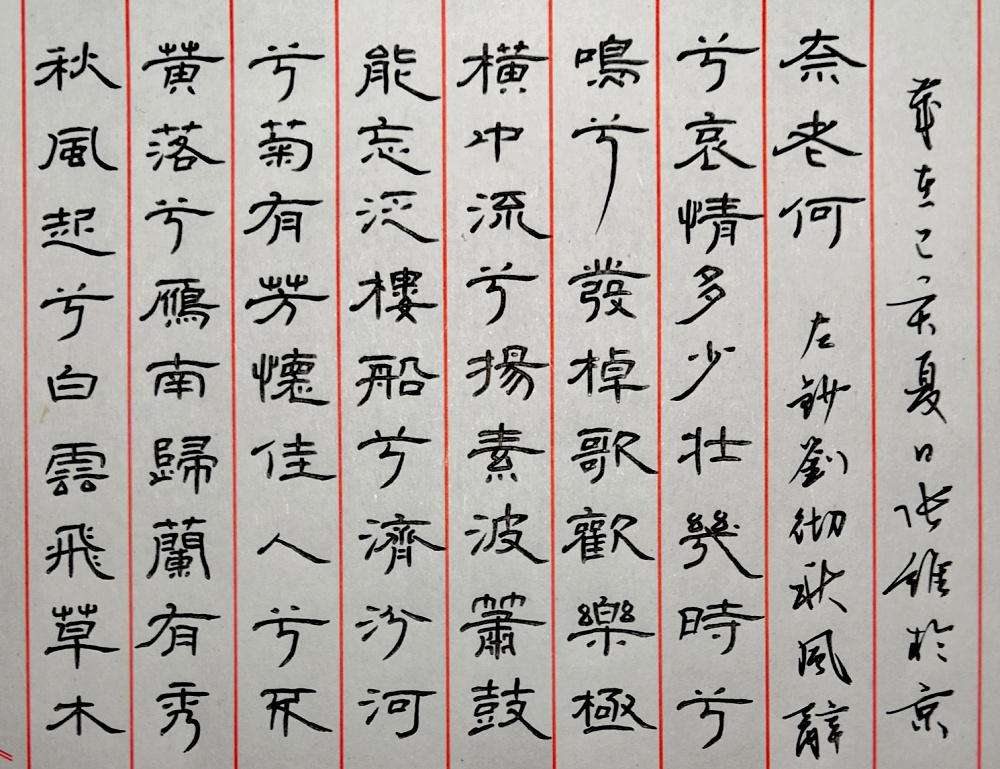 秋風起兮白雲飛草木
黄落兮鴈南歸蘭有秀
兮菊有芳懷佳人兮不
能忘泛樓船兮濟汾河
橫中流兮揚素波簫鼓
鳴兮發棹歌歡樂極
兮哀情多少壯幾時兮
奈老何 左鈔劉徹秋風辭
歲在己亥夏日張維於京